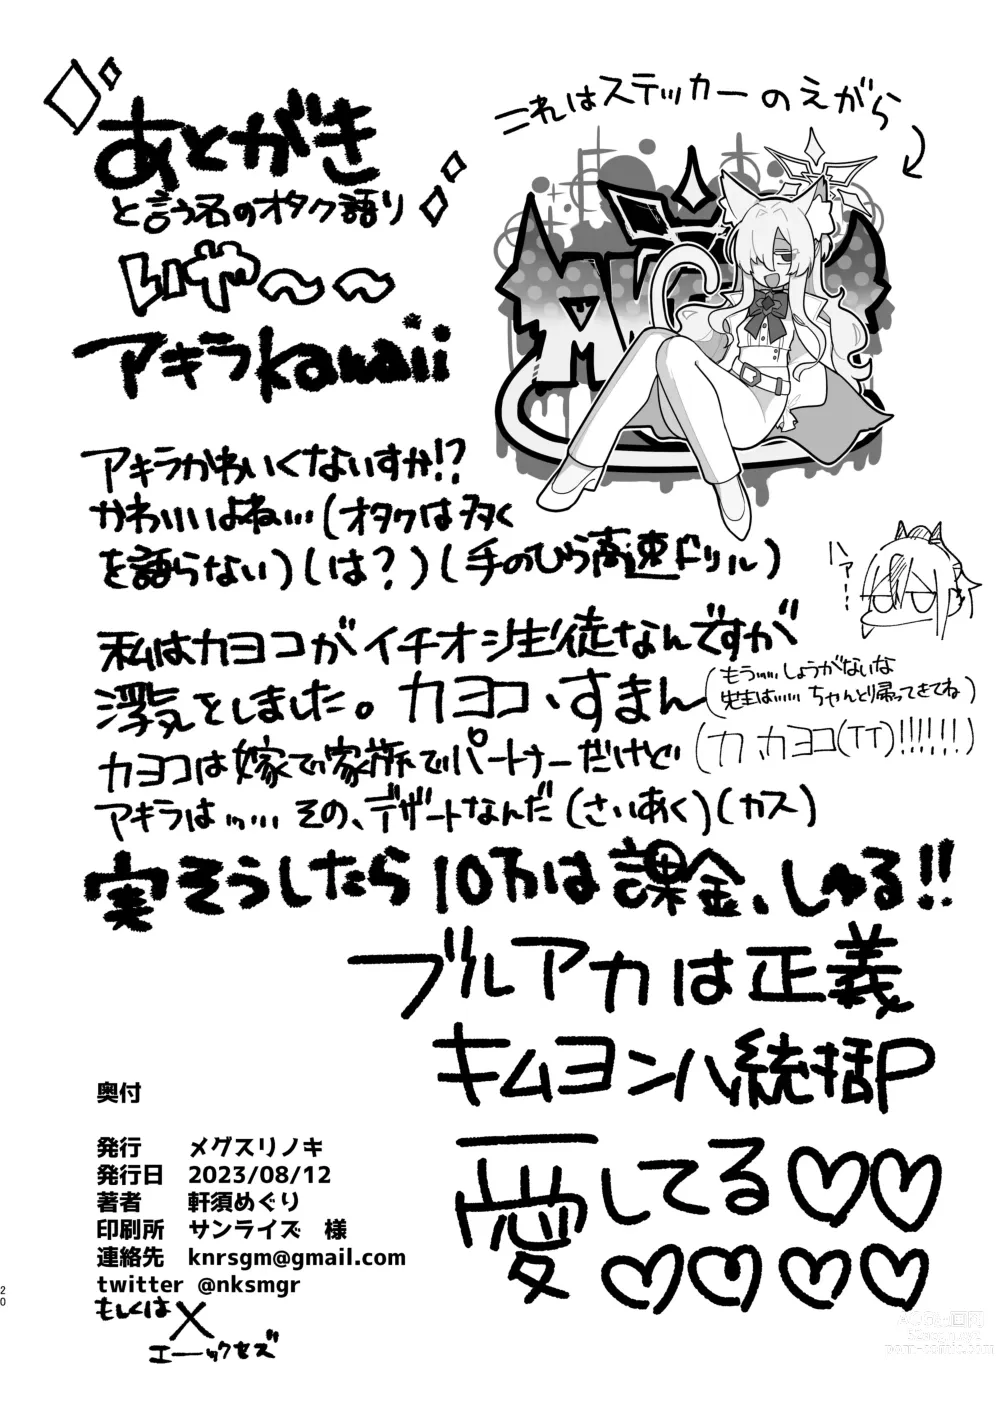 あとがき
と言う名のオタク語り
いや〜〜
アキラkawaii
これはステッカーのえがら
アキラかわいくないすか!?
かわいいよね…(オタクは多く
を語らない)(は?)(手のひら高速ドリル)
ハァ…
私はカヨコがイチオシ生徒なんですが
浮気をしました。カヨコ、すまん
(もう……しょうがないな
先生は…… ちゃんと帰ってきてね)
(カ、カヨコ(TT)!!!!!!)
カヨコは嫁で家族でパートナーだけど
アキラは…… その、デザートなんだ(さいあく)(カス)
実そうしたら10万は課金、しゅる!!
ブルアカは正義
キムヨンハ統括P
愛してる♡♡
♡♡♡♡
奥付
発行 メグスリノキ
発行日 2023/08/12
著者 軒須めぐり
印刷所 サンライズ 様
連絡先 knrsgm@gmail.com
twitter @nksmgr
もしくは X
エーックセズ
20